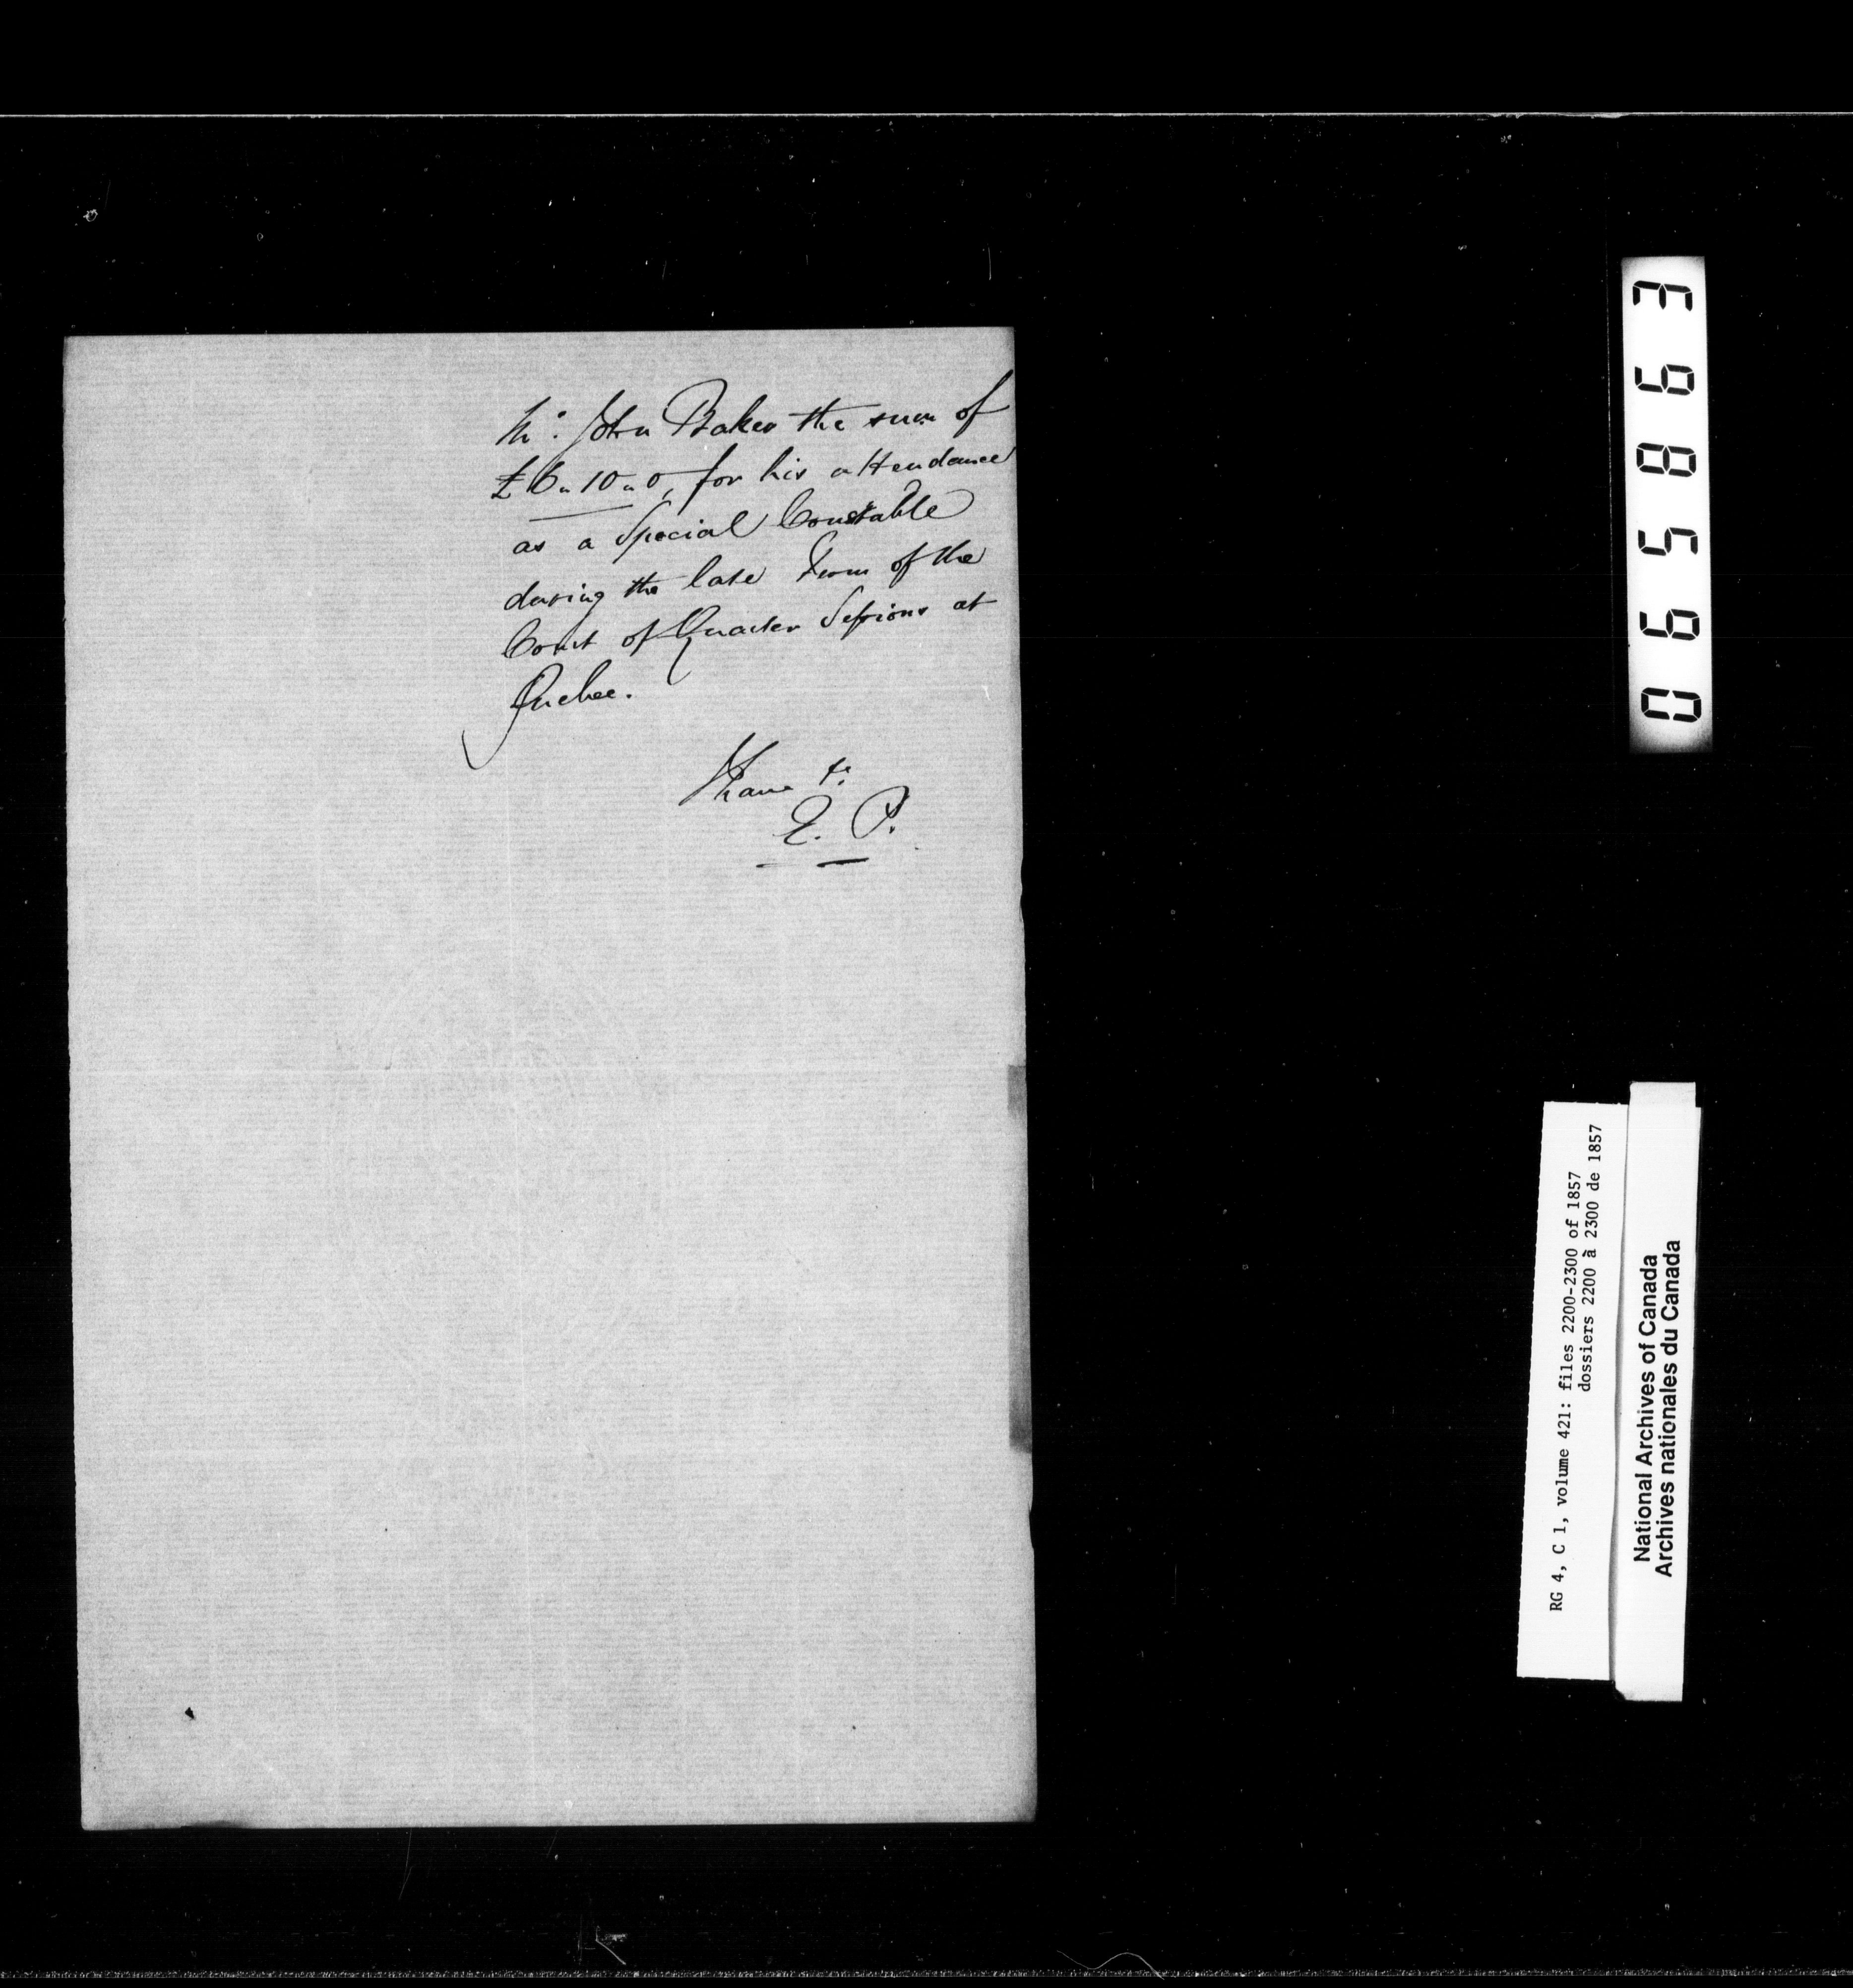 Mr. John Baker the sum of
£6 " 10 " 0, for his attendance
as a Special Constable
during the late Term of the
Court of Quarter Sessions at
Quebec.
I have &c.
E. P.
065863
RG 4, C 1, volume 421: files 2200-2300 of 1857
dossiers 2200 à 2300 de 1857
National Archives of Canada
Archives nationales du Canada